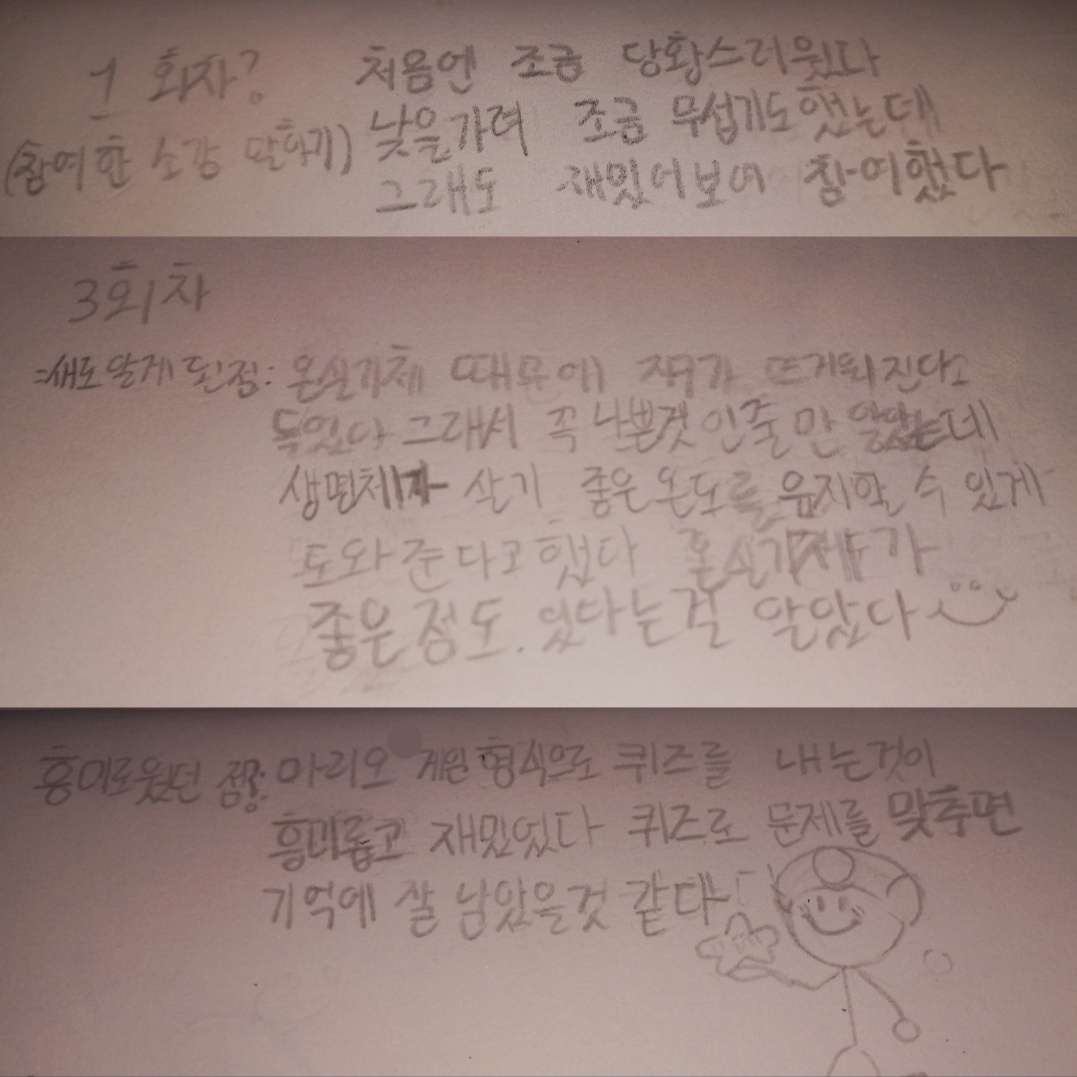 1 회차? 처음엔 조금 당황스러웠다
(참여한 소감 말하기) 낯을가려 조금 무섭기도했는데
그래도 재밌어보여 참여했다
3회차
=새로알게된점: 온실가체 때문에 지구가 뜨거워진다고
듣었다 그래서 꼭 나쁜것인줄만 알았는데
생명체가 살기 좋은온도를 유지할 수 있게
도와준다고했다 온실가체가
좋은점도.있다는걸 알았다
흥미로웠던 점: 마리오 게임형식으로 퀴즈를 내는것이
흥미롭고 재밌었다 퀴즈로 문제를 맞추면
기억에 잘 남았을것 같다